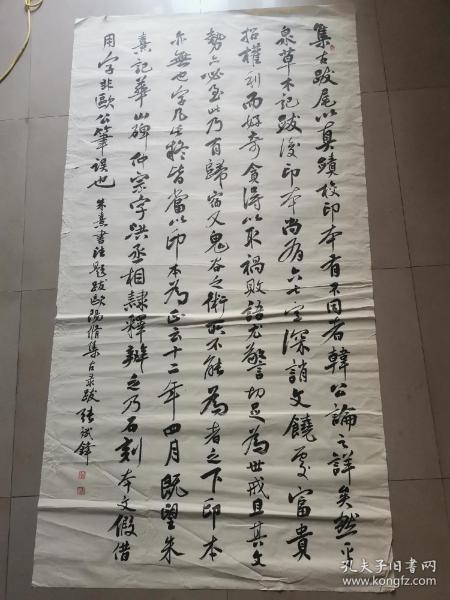 集古跋尾以真蹟校印本有不同者韓公論之詳矣然平
泉草木記跋後印本尚有六七字深誚文饒處富貴
招權利而好奇貪得以取禍敗語尤警切足為世戒且其文
勢亦必至此乃有歸宿又鬼谷之術所不能為者之下印本
亦無也字凡此疑皆當以印本為正云十二年四月既望朱
熹記華山碑仲宗字洪丞相隸釋辨之乃石刻本文假借
用字非歐公筆誤也
朱熹書法題跋歐陽脩集古录跋 張斌鋒
孔夫子旧书网
www.kongfz.com